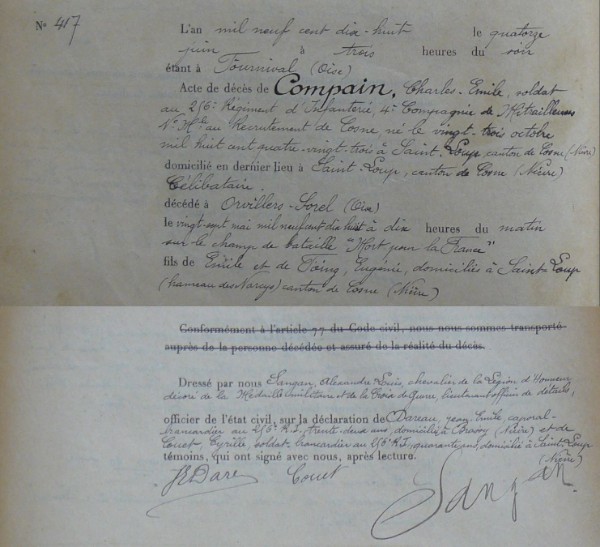 N° 417
L'an mil neuf cent dix-huit le quatorze
juin à trois heures du soir
étant à Tournival (Oise)
Acte de décès de Compain, Charles-Emile, soldat
au 256e Régiment d'Infanterie, 4e Compagnie de Mitrailleuses
N° Mle au Recrutement de Cosne, né le vingt-trois octobre
mil huit cent quatre-vingt-trois à Saint-Loup, canton de Cosne (Nièvre)
domicilié en dernier lieu à Saint-Loup, canton de Cosne (Nièvre)
Célibataire.
décédé à Orvillers-Sorel (Oise)
le vingt-sept mai mil neuf cent dix huit à dix heures du matin
sur le champ de bataille "Mort pour la France"
fils de Emile et de Toing, Eugénie, domiciliés à Saint-Loup
(hameau des Narcys) canton de Cosne (Nièvre)
Conformément à l'article 77 du Code civil, nous nous sommes transporté
auprès de la personne décédée et assuré de la réalité du décès.
Dressé par nous Sangan, Alexandre Louis, chevalier de la Légion d'Honneur,
décoré de la Médaille militaire et de la Croix de Guerre, lieutenant officier de détails,
officier de l'état civil, sur la déclaration de Dareau, Jean Emile, caporal-
brancardier au 256e R.I., trente-deux ans, domicilié à (Nièvre) et de
Couet, Cyrille, soldat brancardier au 256e R.I., quarante ans, domicilié à Saint-Loup
(Nièvre)
témoins, qui ont signé avec nous, après lecture.
Couet
Sangan